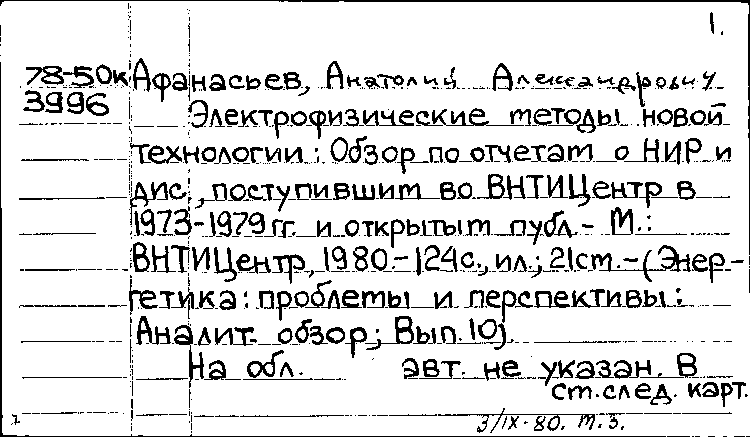 1.
78-50к Афанасьев, Анатолий Александрович
3996 Электрофизические методы новой
технологии: Обзор по отчетам о НИР и
дис., поступившим во ВНТИЦентр в
1973-1979 гг. и открытым публ.- М.:
ВНТИЦентр, 1980.-124с., ил.; 21см.-(Энер-
гетика: проблемы и перспективы:
Аналит. обзор; Вып. 10).
На обл. авт. не указан. В
см.след. карт.
3/IX-80. т.з.